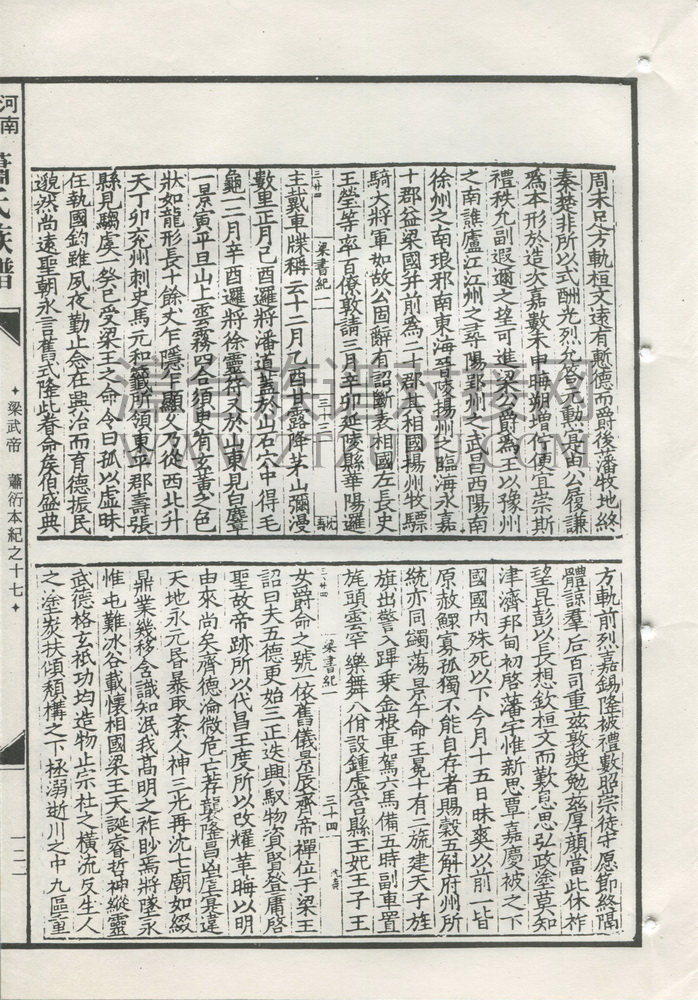 周末兄方軌桓文遠有慙德而爵後藩牧地終
秦楚非所以式酬光烈允答元勳寔由公履謙
爲本形於造次嘉數未申晦朔增佇便宜崇斯
禮秩允副遐邇之望可進梁公爵爲王以豫州
之南譙廬江江州之尋陽郢州之武昌西陽南
徐州之南琅邪南東海晉陵揚州之臨海永嘉
十郡益梁國并前爲二十郡其相國揚州牧驃
騎大將軍如故公固辭有詔斷表相國左長史
王瑩等率百僚敦請三月辛卯延陵縣華陽邏
三廿四 梁書紀一 三十三
主戴車牒稱云十二月乙酉甘露降茅山彌漫
數里正月己酉邏將潘道蓋於山石穴中得毛
龜一二月辛酉邏將徐靈符又於山東見白麞
一景寅平旦山上雲霧四合須臾有玄黃之色
狀如龍形長十餘丈乍隱乍顯久乃從西北升
天丁卯兗州刺史馬元和籤所領東平郡壽張
縣見騶虞一癸巳受梁王之命令曰孤以虛昧
任執國鈞雖夙夜勤止念在興治而育德振民
邈然尚遠聖朝永言舊式隆此眷命侯伯盛典
方軌前烈嘉錫隆被禮數昭崇徒守愿節終隔
體諒羣后百司重茲敦奬勉茲厚顏當此休祚
望昆彭以長想欽桓文而歎息思弘政塗莫知
津濟邦甸初啓藩宇惟新思覃嘉慶被之下
國國內殊死以下今月十五日昧爽以前一皆
原赦鰥寡孤獨不能自存者賜穀五斛府州所
統亦同蠲蕩景午命王冕十有二旒建天子旌
旗出警入蹕乘金根車駕六馬備五時副車置
旄頭雲罕樂舞八佾設鍾虡宮縣王妃王子王
三廿四 梁書紀一 三十四
女爵命之號一依舊儀景辰齊帝禪位于梁王
詔曰夫五德更始三正迭興馭物資賢登庸啓
聖故帝跡所以代昌王度所以改耀革晦以明
由來尚矣齊德淪微危亡荐襲隆昌凶虐寔違
天地永元昏暴取紊人神三光再沈七廟如綴
鼎業幾移含識知泯我高明之祚眇焉將墜永
惟屯難冰谷載懷相國梁王天誕睿哲神縱靈
武德格玄祇功均造物止宗社之橫流反生人
之塗炭扶傾頹構之下拯溺逝川之中九區重
河南 蕭氏族譜
梁武帝 蕭衍本紀之十七
一二一
沿台族谱对接网
WWW.ZTZUPU.COM